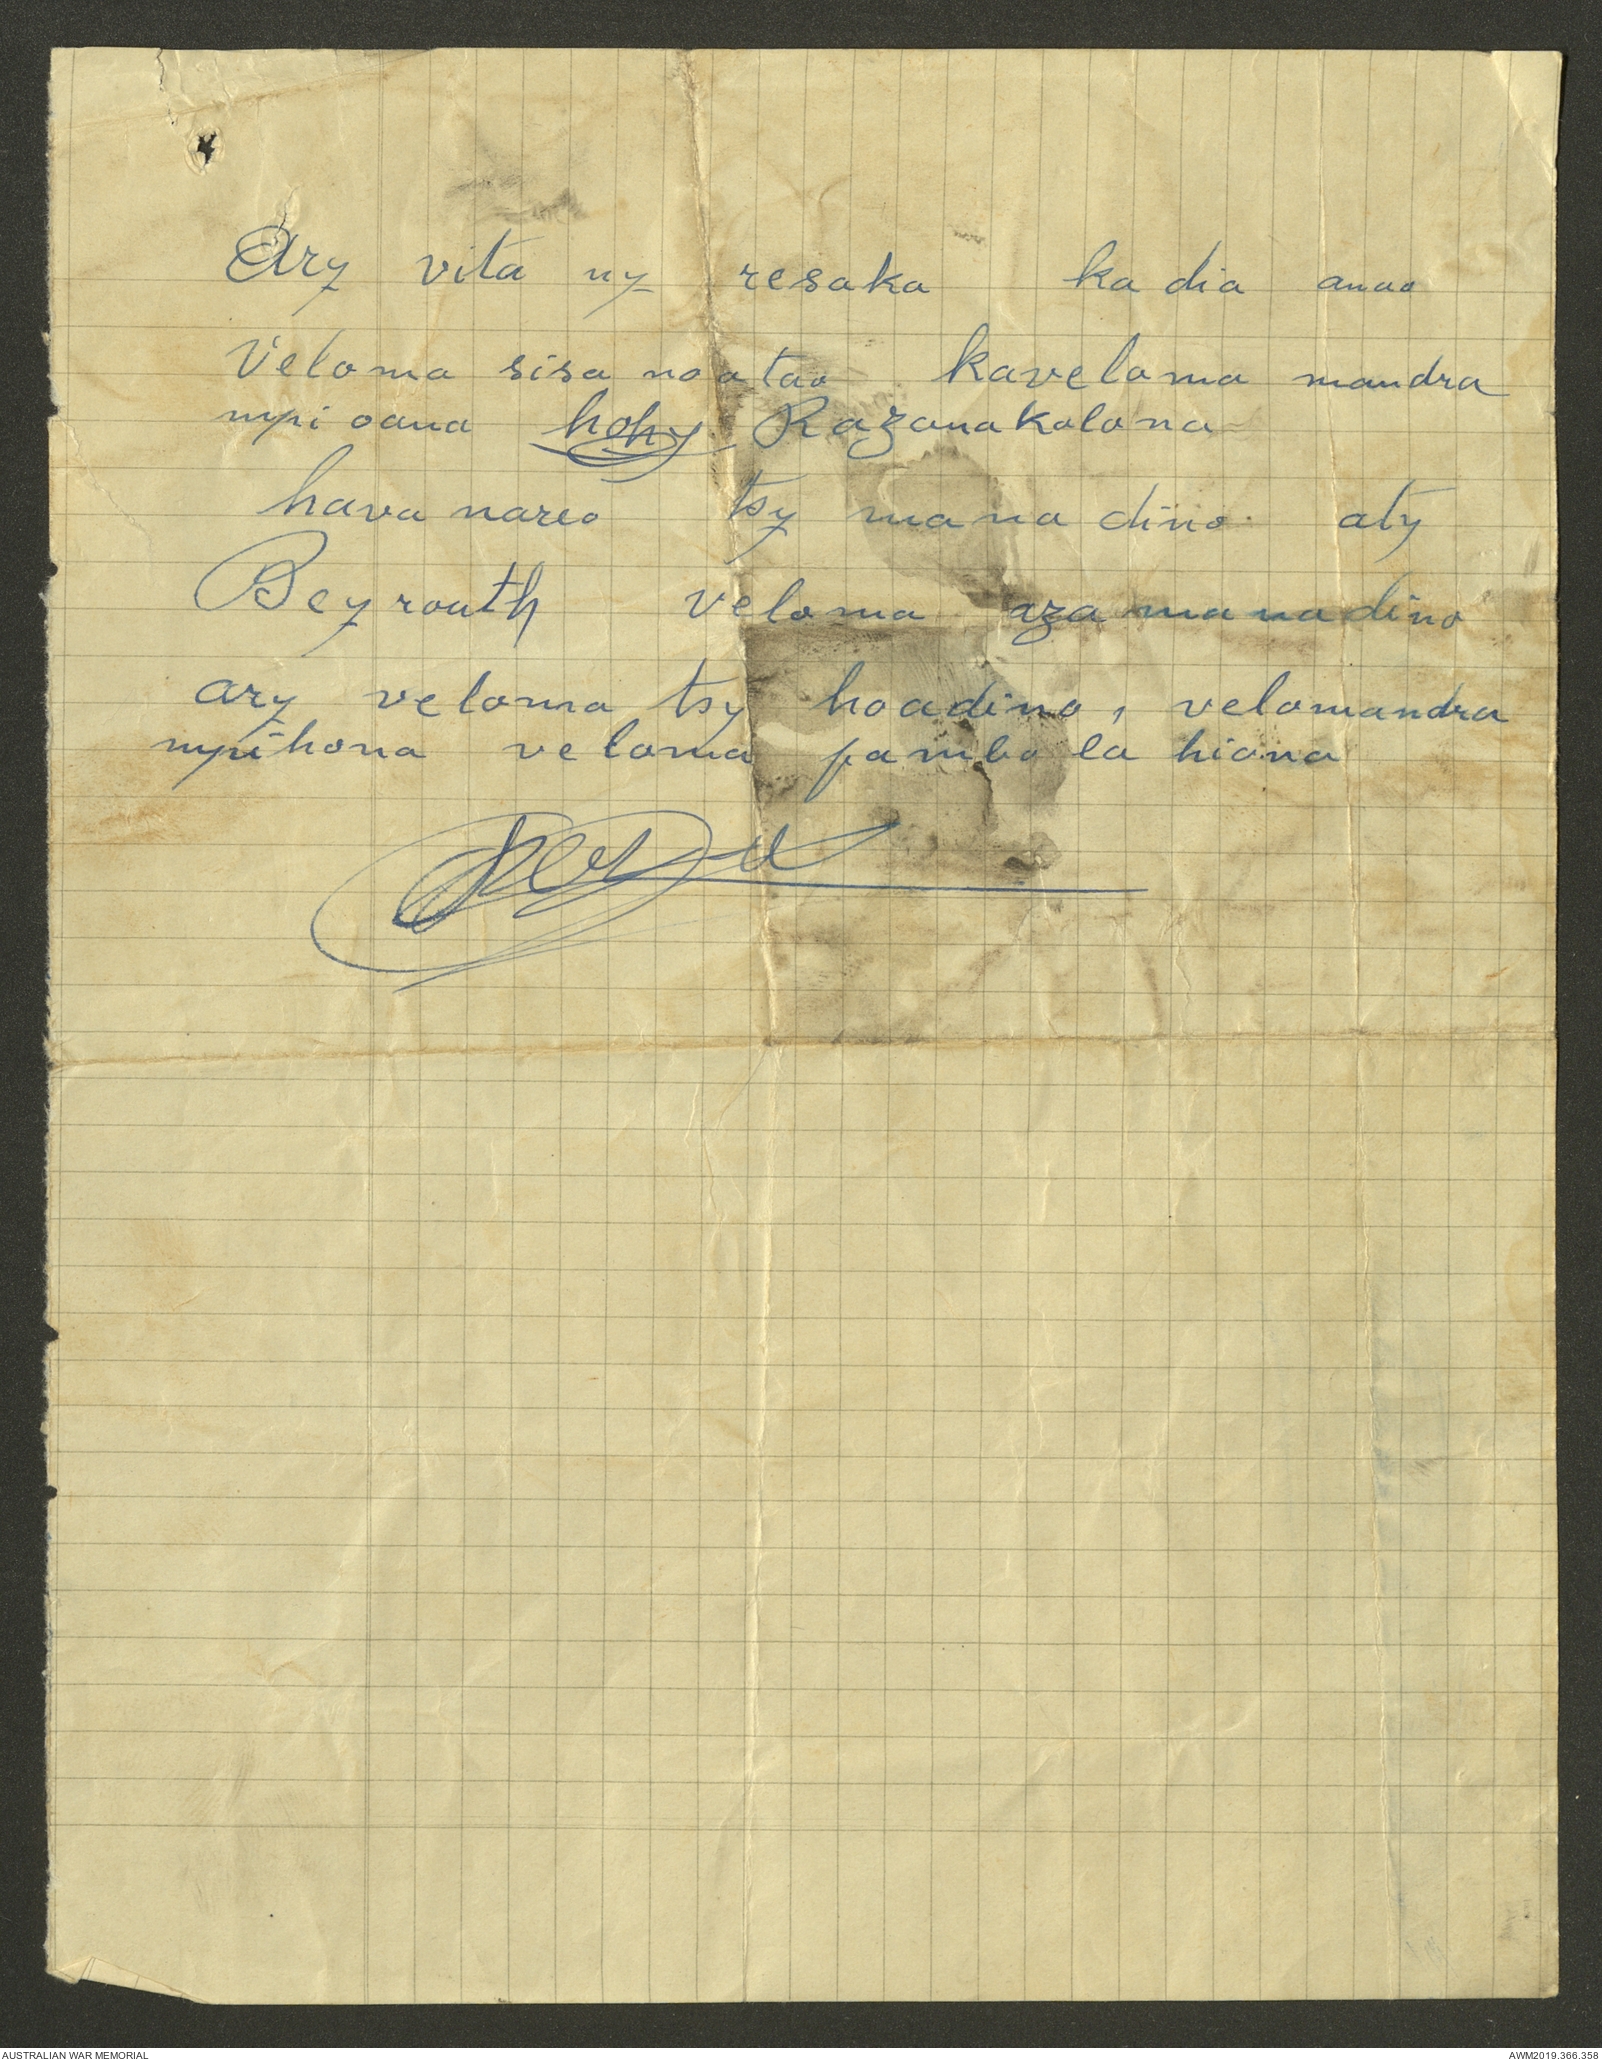 Ary vita ny resaka ka dia anao
Veloma sisa no atao kaveloma mandra
mpi oana hohy Razanakolona
hava nareo tsy mana dino aty
Beyrouth veloma aza manadino
ary veloma tsy hoadino, velomandra
mpihona veloma pambo la hiana
AUSTRALIAN WAR MEMORIAL
AWM2019.366.358